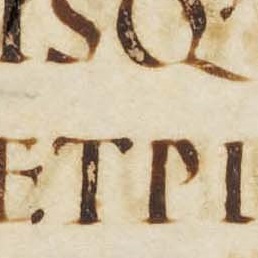 ISQ
ETPI